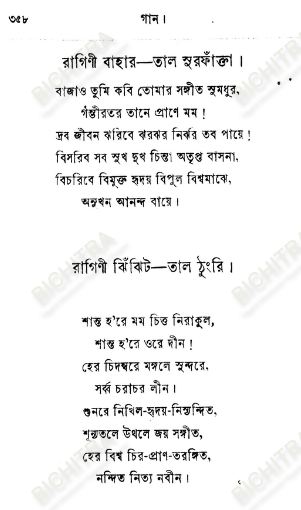 ৩৫৮
গান।
রাগিণী বাহার—তাল সুরফাঁক্তা।
বাজাও তুমি কবি তোমার সঙ্গীত সুমধুর,
গম্ভীরতর তানে প্রাণে মম!
দ্রব জীবন ঝরিবে ঝরঝর নির্ঝর তব পায়ে!
বিসরিব সব সুখ দুখ চিন্তা অতৃপ্ত বাসনা,
বিচরিবে বিমুক্ত হৃদয় বিপুল বিশ্বমাঝে,
অনুখন আনন্দ বায়ে।
রাগিণী ঝিঁঝিট—তাল ঠুংরি।
শান্ত হ'রে মম চিত্ত নিরাকুল,
শান্ত হ'রে ওরে দীন!
হের চিদম্বরে মঙ্গলে সুন্দরে,
সর্ব্ব চরাচর লীন।
শুনরে নিখিল-হৃদয়-নিস্যন্দিত,
শূন্যতলে উথলে জয় সঙ্গীত,
হের বিশ্ব চির-প্রাণ-তরঙ্গিত,
নন্দিত নিত্য নবীন।
BICHITRA